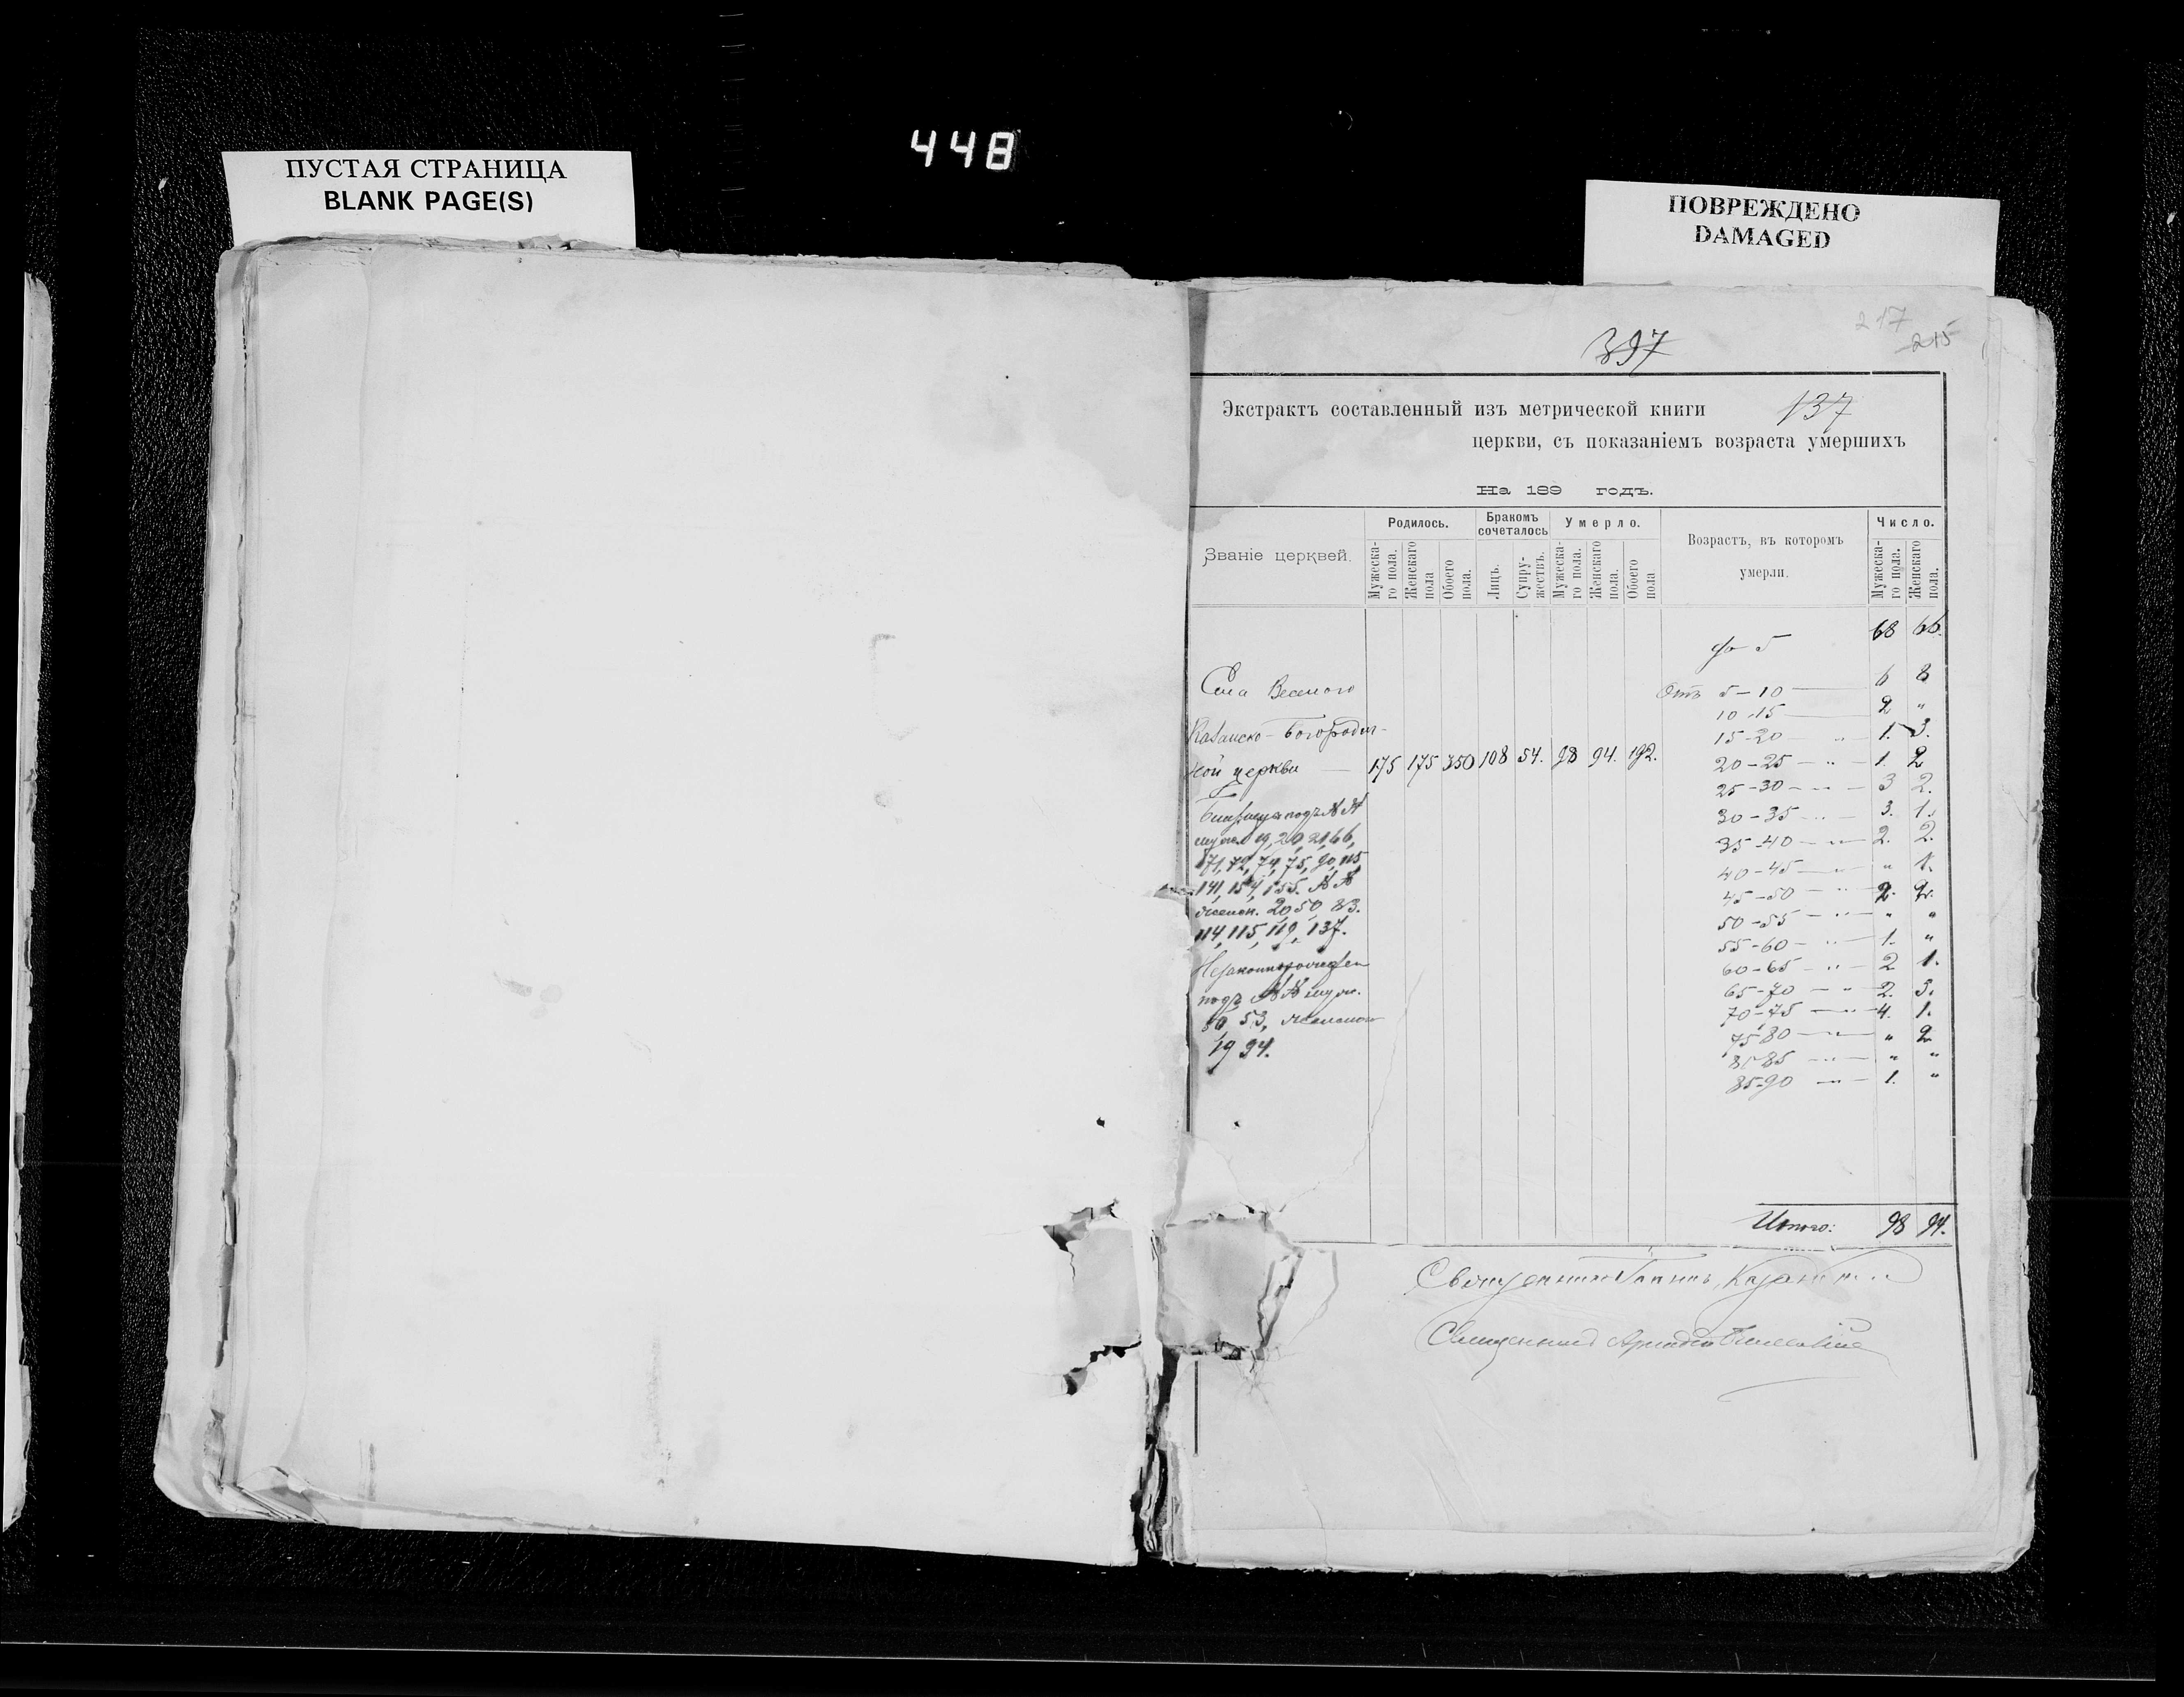 448
ПУСТАЯ СТРАНИЦА
BLANK PAGE(S)
ПОВРЕЖДЕНО
DAMAGED
217
215
397
137
Экстрактъ составленный изъ метрической книги
церкви, съ показаніемъ возраста умершихъ
На 189 годъ.
Званіе церквей.
Родилось.
Мужеска-
го пола.
Женскаго
пола
Обоего
пола.
Бракомъ
сочеталось
Лицъ.
Супру-
жествъ.
Умерло.
Мужеска-
го пола.
Женскаго
пола.
Обоего
пола
Возрастъ, въ которомъ
умерли.
Число.
Мужеска-
го пола.
Женскаго
пола.
до 5 68 66.
Села
Отъ 5-10 6 8
10-15 2 "
Казанско-Богородич-
15-20 " 1. 3.
ной церкви 175 175 350 108 54. 98 94. 192.
20-25 " 1. 2
25-30 " 3 2.
Близнецы подъ №№
30-35 " 3. 1.
муж. 19, 20, 21, 66,
35-40 " 2. 2.
71, 72, 74, 75, 90, 115
40-45 " " 1.
141, 154, 155. №№
45-50 " 2. 2.
женск. 20 50 83.
50-55 " " "
114, 115, 119, 137.
55-60 " 1. "
Незаконнорожден
60-65 " 2 1.
подъ №№ муж.
65-70 " 2. 5.
50 53, женск
70-75 " 4. 1.
19 94.
75-80 " " 2
85 " " "
85-90 " 1. "
Итого: 98 94.
Священникъ Іоаннъ
Священникъ